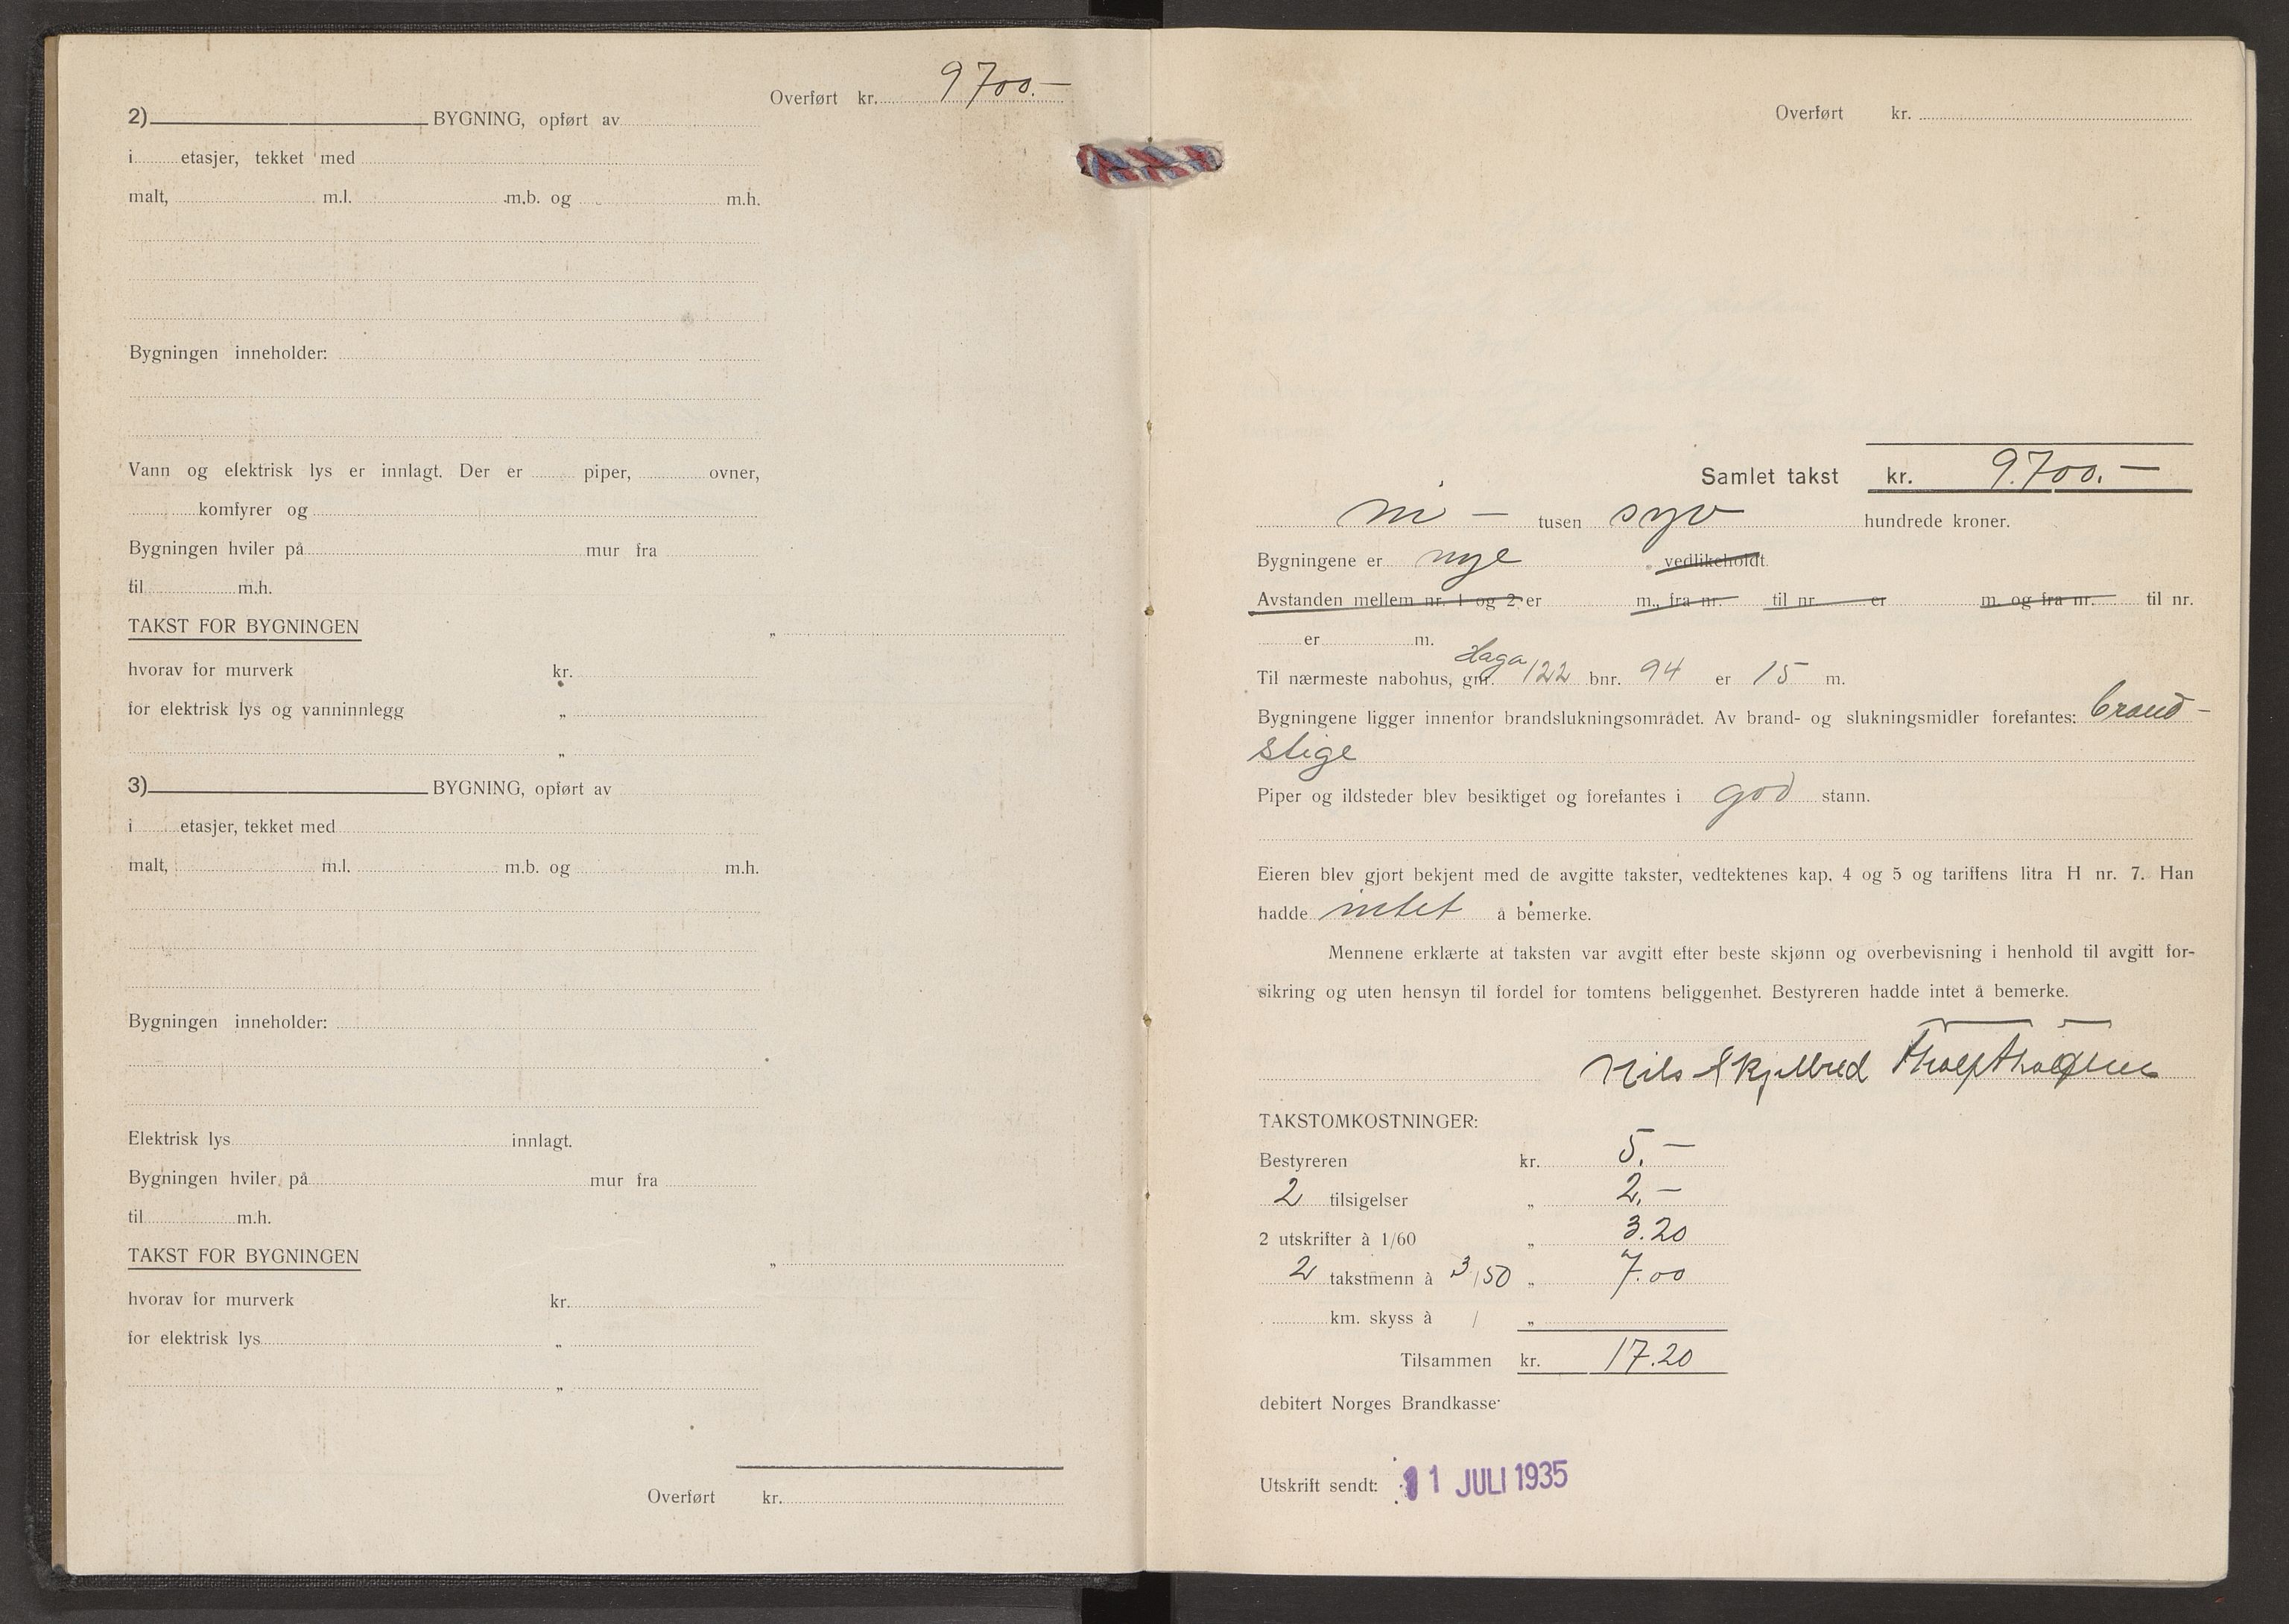 Overført kr. 9700.—
2) BYGNING, opført av
i etasjer, tekket med
malt, m.l. m.b. og m.h.
Bygningen inneholder:
Vann og elektrisk lys er innlagt. Der er piper, ovner,
komfyrer og
Bygningen hviler på mur fra
til m.h.
TAKST FOR BYGNINGEN „
hvorav for murverk kr.
for elektrisk lys og vanninnlegg „
„
3) BYGNING, opført av
i etasjer, tekket med
malt, m.l. m.b. og m.h.
Bygningen inneholder:
Elektrisk lys innlagt.
Bygningen hviler på mur fra
til m.h.
TAKST FOR BYGNINGEN „
hvorav for murverk kr.
for elektrisk lys „
„
Overført kr.
Overført kr.
Samlet takst kr. 9.700.—
ni — tusen syv hundrede kroner.
Bygningene er nye vedlikeholdt.
Avstanden mellem nr. 1 og 2 er m., fra nr. til nr. er m. og fra nr. til nr.
er m.
Haga
Til nærmeste nabohus, gnr. 122 bnr. 94 er 15 m.
Bygningene ligger innenfor brandslukningsområdet. Av brand- og slukningsmidler forefantes: brand-
stige
Piper og ildsteder blev besiktiget og forefantes i god stann.
Eieren blev gjort bekjent med de avgitte takster, vedtektenes kap. 4 og 5 og tariffens litra H nr. 7. Han
hadde intet å bemerke.
Mennene erklærte at taksten var avgitt efter beste skjønn og overbevisning i henhold til avgitt for-
sikring og uten hensyn til fordel for tomtens beliggenhet. Bestyreren hadde intet å bemerke.
Nils Skjelbred
TAKSTOMKOSTNINGER:
Bestyreren kr. 5.—
2 tilsigelser „ 2.—
2 utskrifter à 1/60 „ 3.20
2 takstmenn à 3/50 „ 7.00
km. skyss à / „
Tilsammen kr. 17.20
debitert Norges Brandkasse
Utskrift sendt: 11 JULI 1935